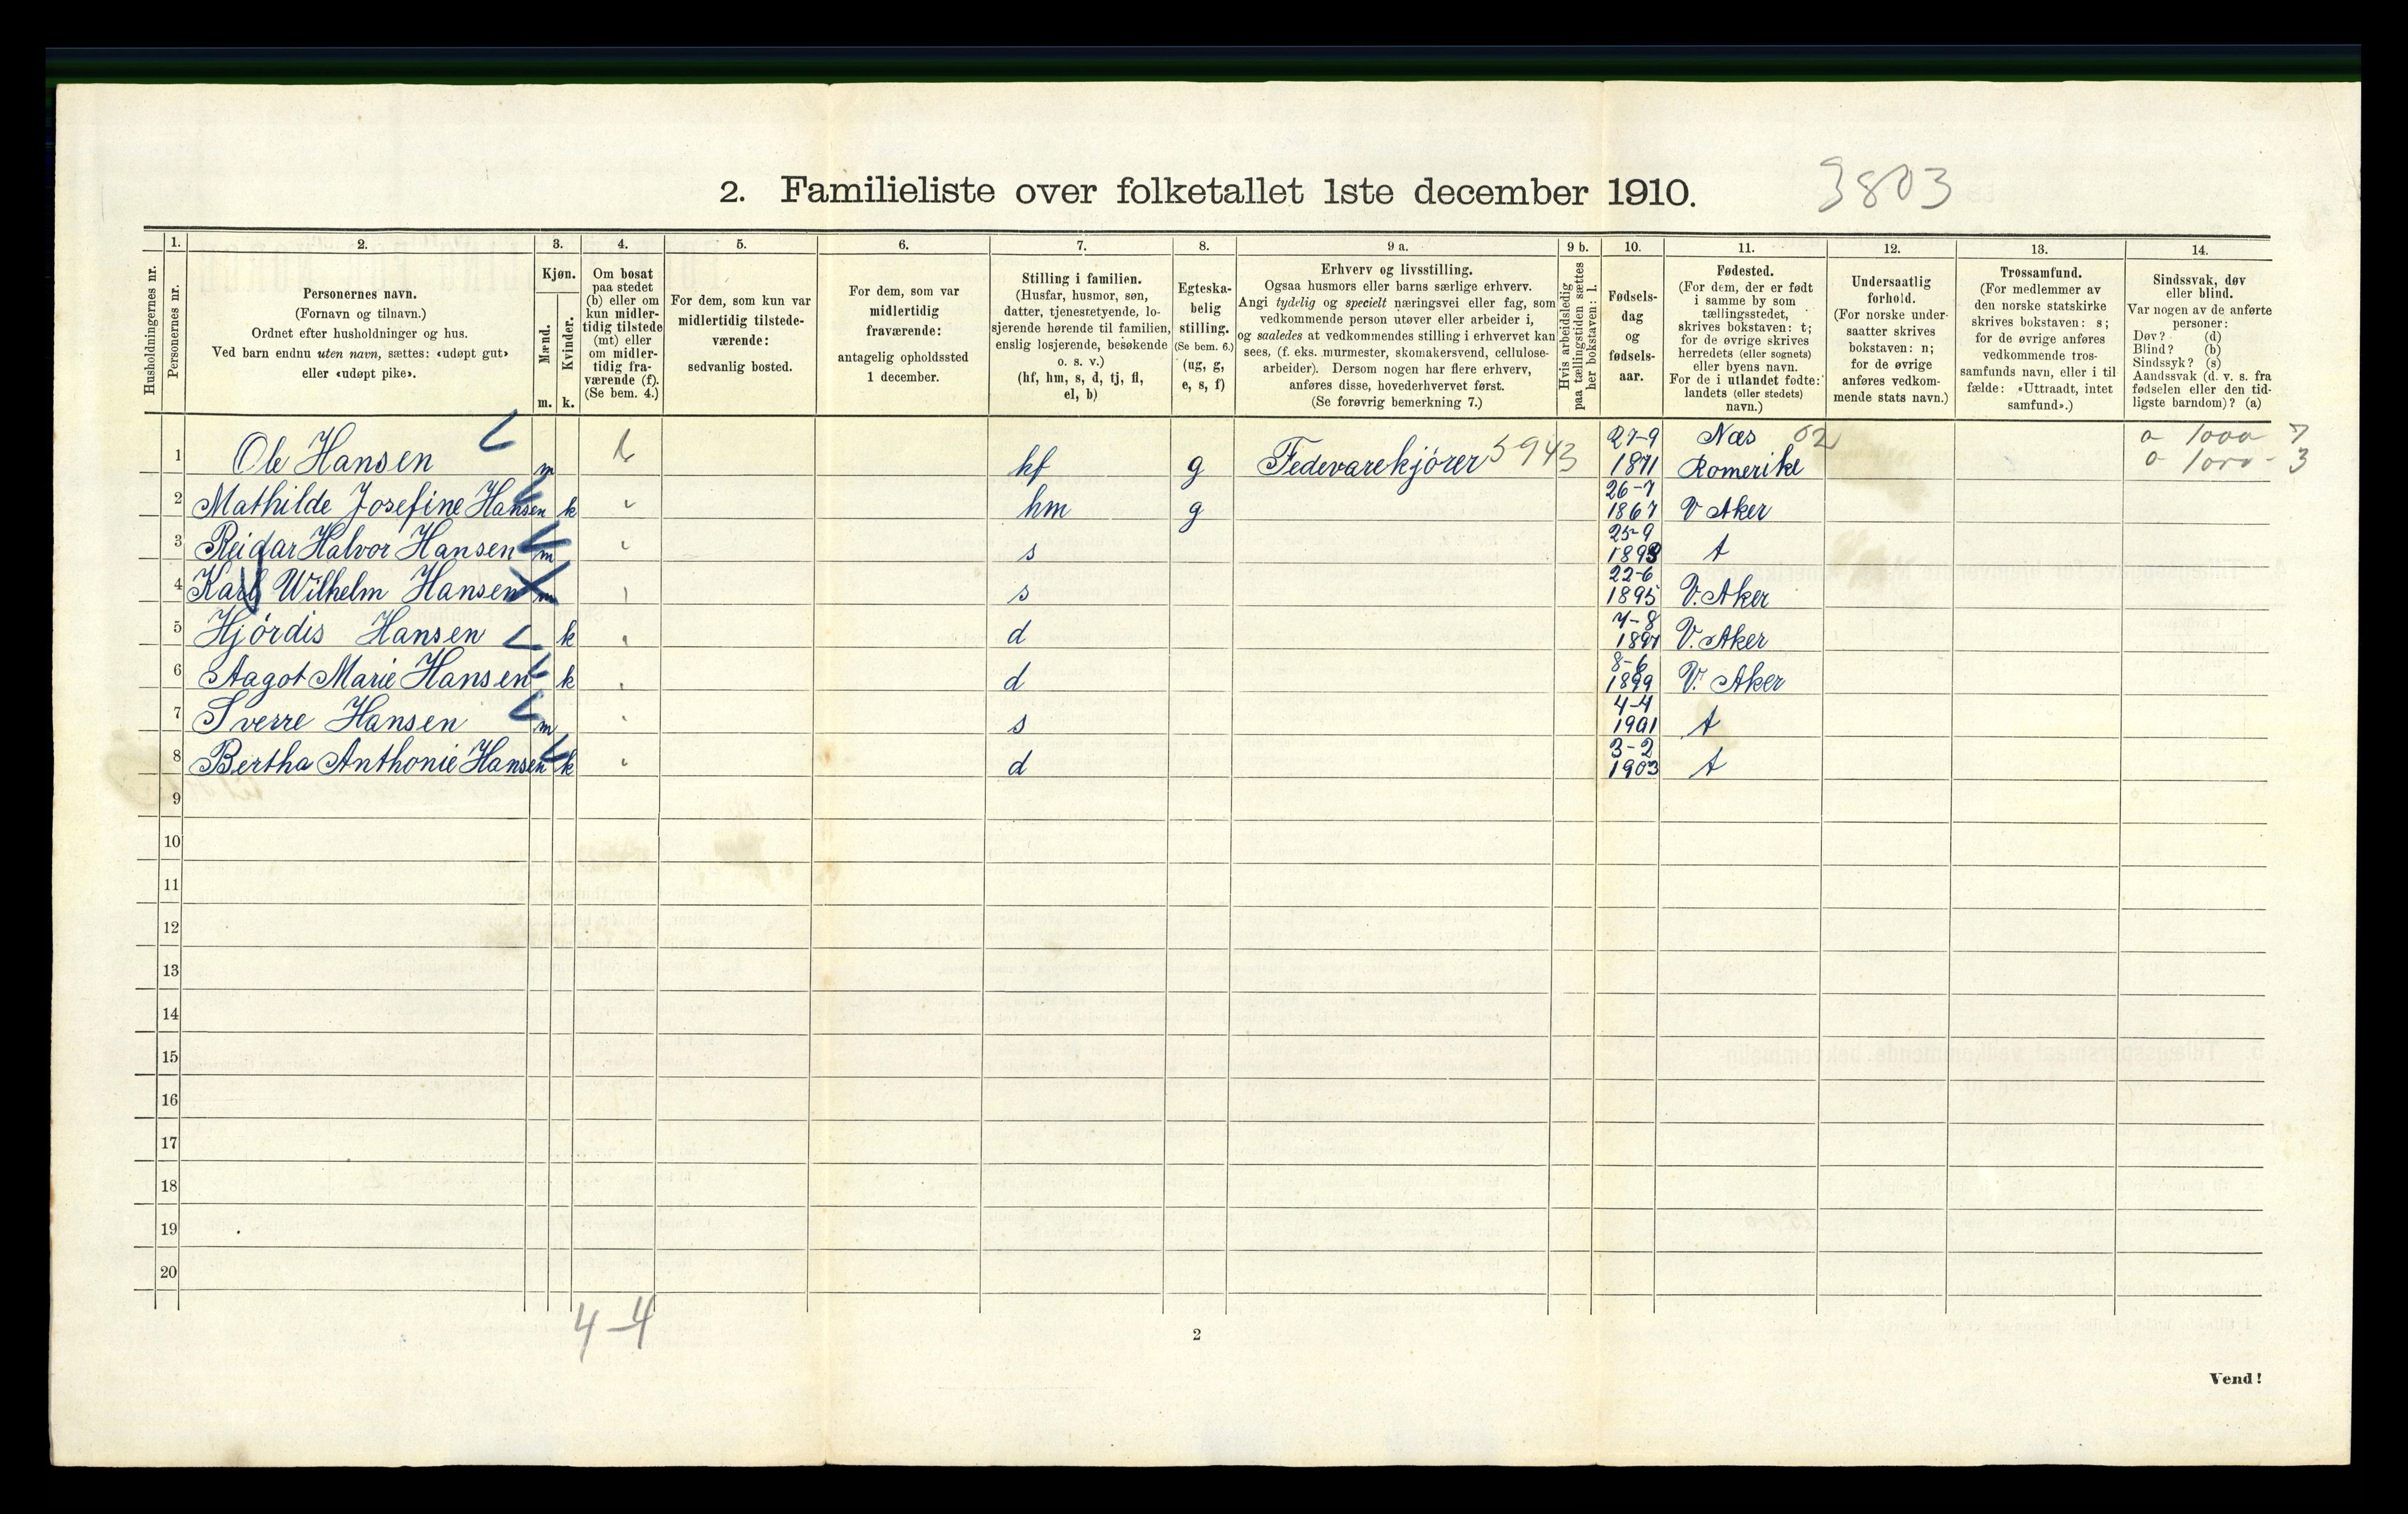 2. Familieliste over folketallet 1ste december 1910. 3803
Husholdningernes nr.
1.
Personernes nr.
2.
Personernes navn.
(Fornavn og tilnavn.)
Ordnet efter husholdninger og hus.
Ved barn endnu uten navn, sættes: «udøpt gut»
eller «udøpt pike».
3.
Kjøn.
Mænd.
Kvinder.
m. k.
4.
Om bosat
paa stedet
(b) eller om
kun midler-
tidig tilstede
(mt) eller
om midler-
tidig fra-
værende (f).
(Se bem. 4.)
5.
For dem, som kun var
midlertidig tilstede-
værende:
sedvanlig bosted.
6.
For dem, som var
midlertidig
fraværende:
antagelig opholdssted
1 december.
7.
Stilling i familien.
(Husfar, husmor, søn,
datter, tjenestetyende, lo-
sjerende hørende til familien,
enslig losjerende, besøkende
o. s. v.)
(hf, hm, s, d, tj, fl,
el, b)
8.
Egteska-
belig
stilling.
(Se bem. 6.)
(ug, g,
e, s, f)
9 a.
Erhverv og livsstilling.
Ogsaa husmors eller barns særlige erhverv.
Angi tydelig og specielt næringsvei eller fag, som
vedkommende person utøver eller arbeider i,
og saaledes at vedkommendes stilling i erhvervet kan
sees, (f. eks. murmester, skomakersvend, cellulose-
arbeider). Dersom nogen har flere erhverv,
anføres disse, hovederhvervet først.
(Se forøvrig bemerkning 7.)
9 b.
Hvis arbeidsledig
paa tællingstiden sættes
her bokstaven: l.
10.
Fødsels-
dag
og
fødsels-
aar.
11.
Fødested.
(For dem, der er født
i samme by som
tællingsstedet,
skrives bokstaven: t;
for de øvrige skrives
herredets (eller sognets)
eller byens navn.
For de i utlandet fødte:
landets (eller stedets)
navn.)
12.
Undersaatlig
forhold.
(For norske under-
saatter skrives
bokstaven: n;
for de øvrige
anføres vedkom-
mende stats navn.)
13.
Trossamfund.
(For medlemmer av
den norske statskirke
skrives bokstaven: s;
for de øvrige anføres
vedkommende tros-
samfunds navn, eller i til
fælde: «Uttraadt, intet
samfund».)
14.
Sindssvak, døv
eller blind.
Var nogen av de anførte
personer:
Døv? (d)
Blind? (b)
Sindssyk? (s)
Aandssvak (d. v. s. fra
fødselen eller den tid-
ligste barndom)? (a)
1 Ole Hansen m b hf g Fedevarekjører 5943 27-9 1871 Næs 02 Romerike
2 Mathilde Josefine Hansen k hm g 26-7 1867 V Aker
3 Reidar Halvor Hansen m s 25-9 1893 t
4 Karl Wilhelm Hansen m s 22-6 1895 V. Aker
5 Hjørdis Hansen k d 7-8 1897 V. Aker
6 Aagot Marie Hansen k d 8-6 1899 V. Aker
7 Sverre Hansen m s 4-4 1901 t
8 Bertha Anthonie Hansen k d 3-2 1903 t
9
10
11
12
13
14
15
16
17
18
19
20
4-4
2
Vend!